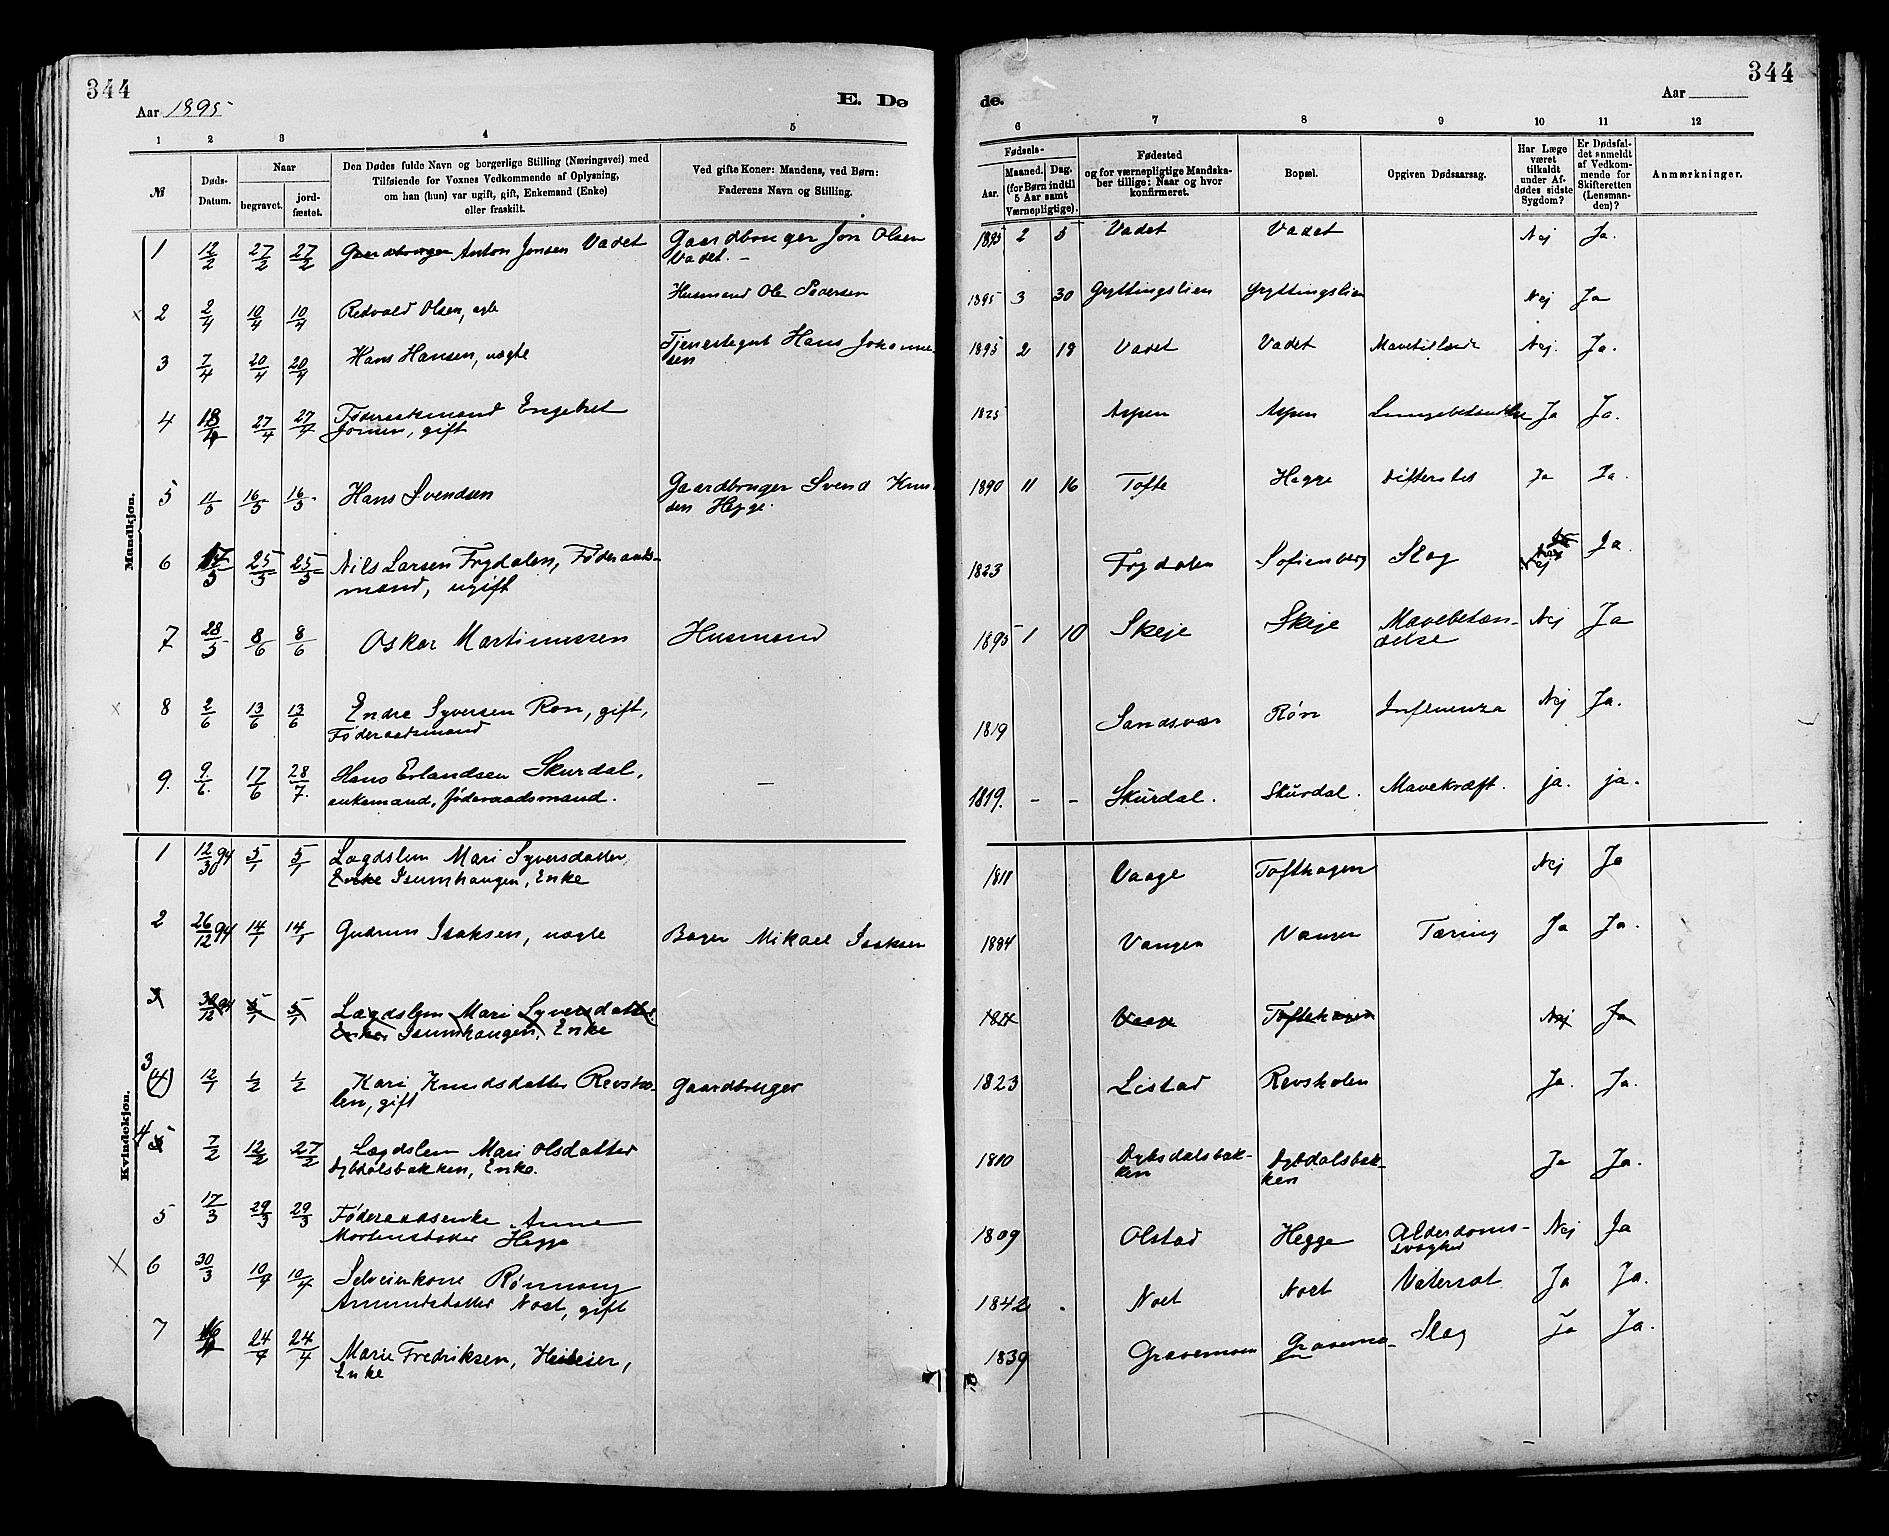 344
344
Aar 1895
E. De
de.
Aar
1 2 3 4 5 6 7 8 9 10 11 12
№
Døds-Datum.
Naar
begravet.
jord-fæstet.
Den Dødes fulde Navn og borgerlige Stilling (Næringsvei) med
Tilføiende for Voxnes Vedkommende af Oplysning,
om han (hun) var ugift, gift, Enkemand (Enke)
eller fraskilt.
Ved gifte Koner: Mandens, ved Børn:
Faderens Navn og Stilling.
Fødsels-
Aar.
Maaned. Dag,
(for Børn indtil
5 Aar samt
Værnepligtige).
Fødested
og for værnepligtige Mandska-
ber tillige: Naar og hvor
konfirmeret.
Bopæl.
Opgiven Dødsaarsag.
Har Læge
været
tilkaldt
under Af-
dødes sidste
Sygdom?
Er Dødsfal-
det anmeldt
af Vedkom-
mende for
Skifteretten
(Lensman-
den)?
Anmærkninger.
Mandkjøn.
1 12/2 27/2 27/2 Gaardbruger Anton Jonsen Vadet Gaardbruger Jon Olsen 1895 2 5 Vadet Vadet Nej Ja.
Vadet. –
2 2/4 10/4 10/4 Redvald Olsen, ægte Husmand Ole Pedersen 1895 3 30 Gryttingslien Gryttingslien Nej Ja
3 7/4 20/4 20/4 Hans Hansen, uægte Tjenestegut Hans Johanne- 1895 2 18 Vadet Vadet Nej. Ja.
sen
4 18/4 27/4 27/4 Føderaadsmand Engebret 1825 Aspen Aspen Ja Ja.
Jonsen, gift
5 11/5 16/5 16/5 Hans Svendsen Gaardbruger Svend Knu- 1890 11 16 Tofte Hegge Ja Ja.
dsen Hegge.
6 17/5 25/5 25/5 Nils Larsen Frydalen, Føderaads- 1823 Frydalen Sofienberg Slag Nej Ja.
mand, ugift
7 28/5 8/6 8/6 Oskar Martinussen Husmand 1895 1 10 Skeje Skeje Mavebetæn- Nej Ja
delse
8 2/6 13/6 13/6 Endre Syversen Røn, gift, 1819 Sandsvær Røn Influenza Nej Ja.
Føderaadsmand
9. 9/6. 17/6 28/7. Hans Erlandsen Skurdal, – 1819. – – Skurdal. Skurdal. Mavekræft. ja. ja.
enkemand, føderaadsmand.
Kvindekjøn.
1 12/30 94 5/1 5/1 Lægdslem Mari Syversdatter 1811 Vaage Tofthagen Nej Ja
Enke Isumhaugen, Enke
2 26/12 94 14/1 14/1 Gudrun Isaksen, uægte Bager Mikael Isaksen 1884 Vangen Vangen Tæring Ja Ja.
3 30/12 94 5/1 5/1 Lægdslem Mari Syversdatter 1811 Vaage Toftehagen Nej Ja
Enke Isumhaugen, Enke
3 (4) 12/1 1/2 1/2 Kari Knudsdatter Revsho- Gaardbruger 1823 Listad Revsholen Ja. Ja.
len, gift
4 5 7/2 12/2 27/2 Lægdslem Mari Olsdatter 1810 Dybdalsbak- Dybdalsbak- Ja Ja.
Dybdalsbakken, Enke. ken ken
5 17/3 29/3 29/3 Føderaadsenke Anne 1809 Olstad Hegge Alderdoms- Nej Ja
Mortensdatter Hegge svaghed
6 30/3 10/4 10/4 Selveierkone Rønnaug 1842 Noet Noet Vatersot Ja Ja.
Amundsdatter Noet, gift
7 16/4 24/4 24/4 Marie Fredriksen, 1839 Gravemoen Gravemo- Slag Ja Ja.
Enke en